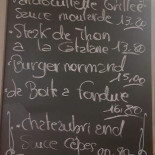 Andouillette Grillée
Sauce moutarde 13,20
- Steak de Thon
a la Catalane 17,80
- Burger normand
15,00
de Boite a fondue
16,80
- Chateaubriand
Sauce Cêpes